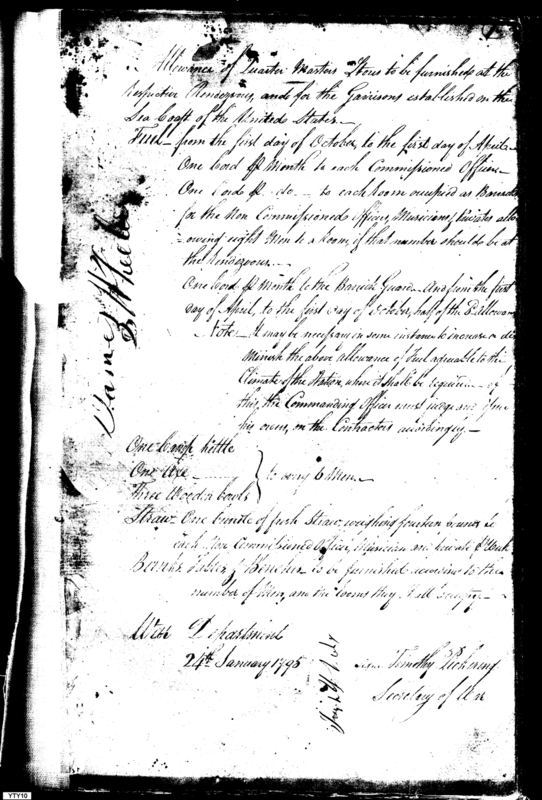 Allowance of Quarter Masters Stores to be furnished at the
Respective Rendezvous, and for the Garrisons established on the
Sea Coast of the United States.
Fuel - from the first day of October, to the first day of April.
One Cord ⅌ Month to each Commissioned Officer.
One Cord ⅌ do. - to each room occupied as Barracks
for the Non Commissioned Officers, Musicians & privates all-
owing eight Men to a Room, if that number should be at
the Rendezvous.
One Cord ⅌ Month to the Barrick Guard. And from the first
day of April, to the first day of October, half of the allowance
Note - It may be necessary in some instances to increase or di-
minish the above allowance of Fuel agreeable to the
Climate of the Station, where it shall be required - of
this, the Commanding Officer must judge and
his orders, on the Contractors accordingly. -
One Camp kettle
One Axe
Three Wooden bowls
to every 6 Men.
Straw - One bundle of fresh Straw, weighing fourteen pounds to
each Non Commissioned Officer, Musician and private
Tables & Benches to be furnished according to the
number of Men, and the rooms they shall occupy.
War Department
24th January 1795
Timothy Pickering
Secretary of War
James
YTY10